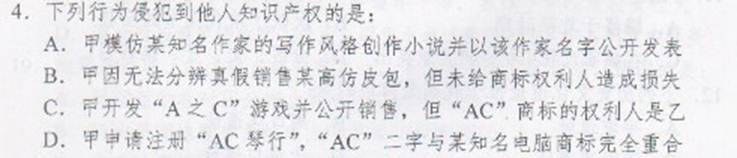 4. 下列行为侵犯到他人知识产权的是：
A. 甲模仿某知名作家的写作风格创作小说并以该作家名字公开发表
B. 甲因无法分辨真假销售某高仿皮包，但未给商标权利人造成损失
C. 甲开发“A之C”游戏并公开销售，但“AC”商标的权利人是乙
D. 甲申请注册“AC琴行”，“AC”二字与某知名电脑商标完全重合